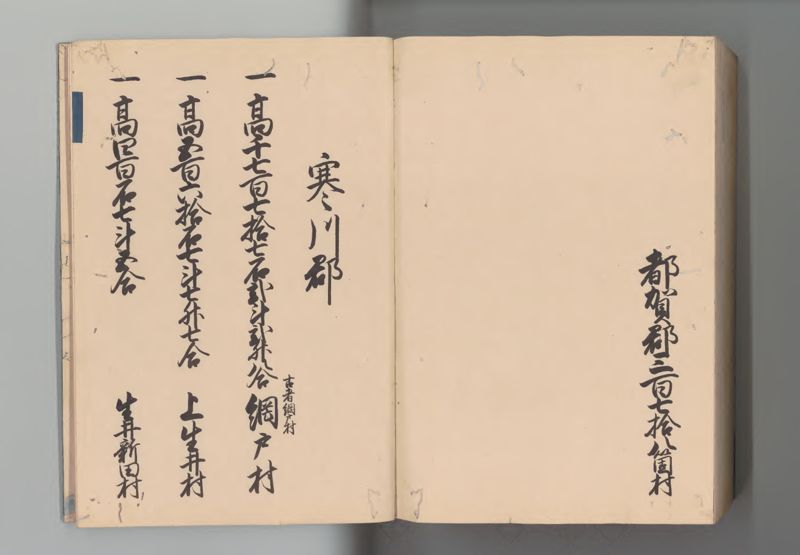 都賀郡三百七拾八箇村
寒川郡
一高千七百七拾七石弐斗弐升八合
古者綱戸村
網戸村
一高五百六拾石七斗七升七合
上生井村
一高四百石七斗五合
生井新田村